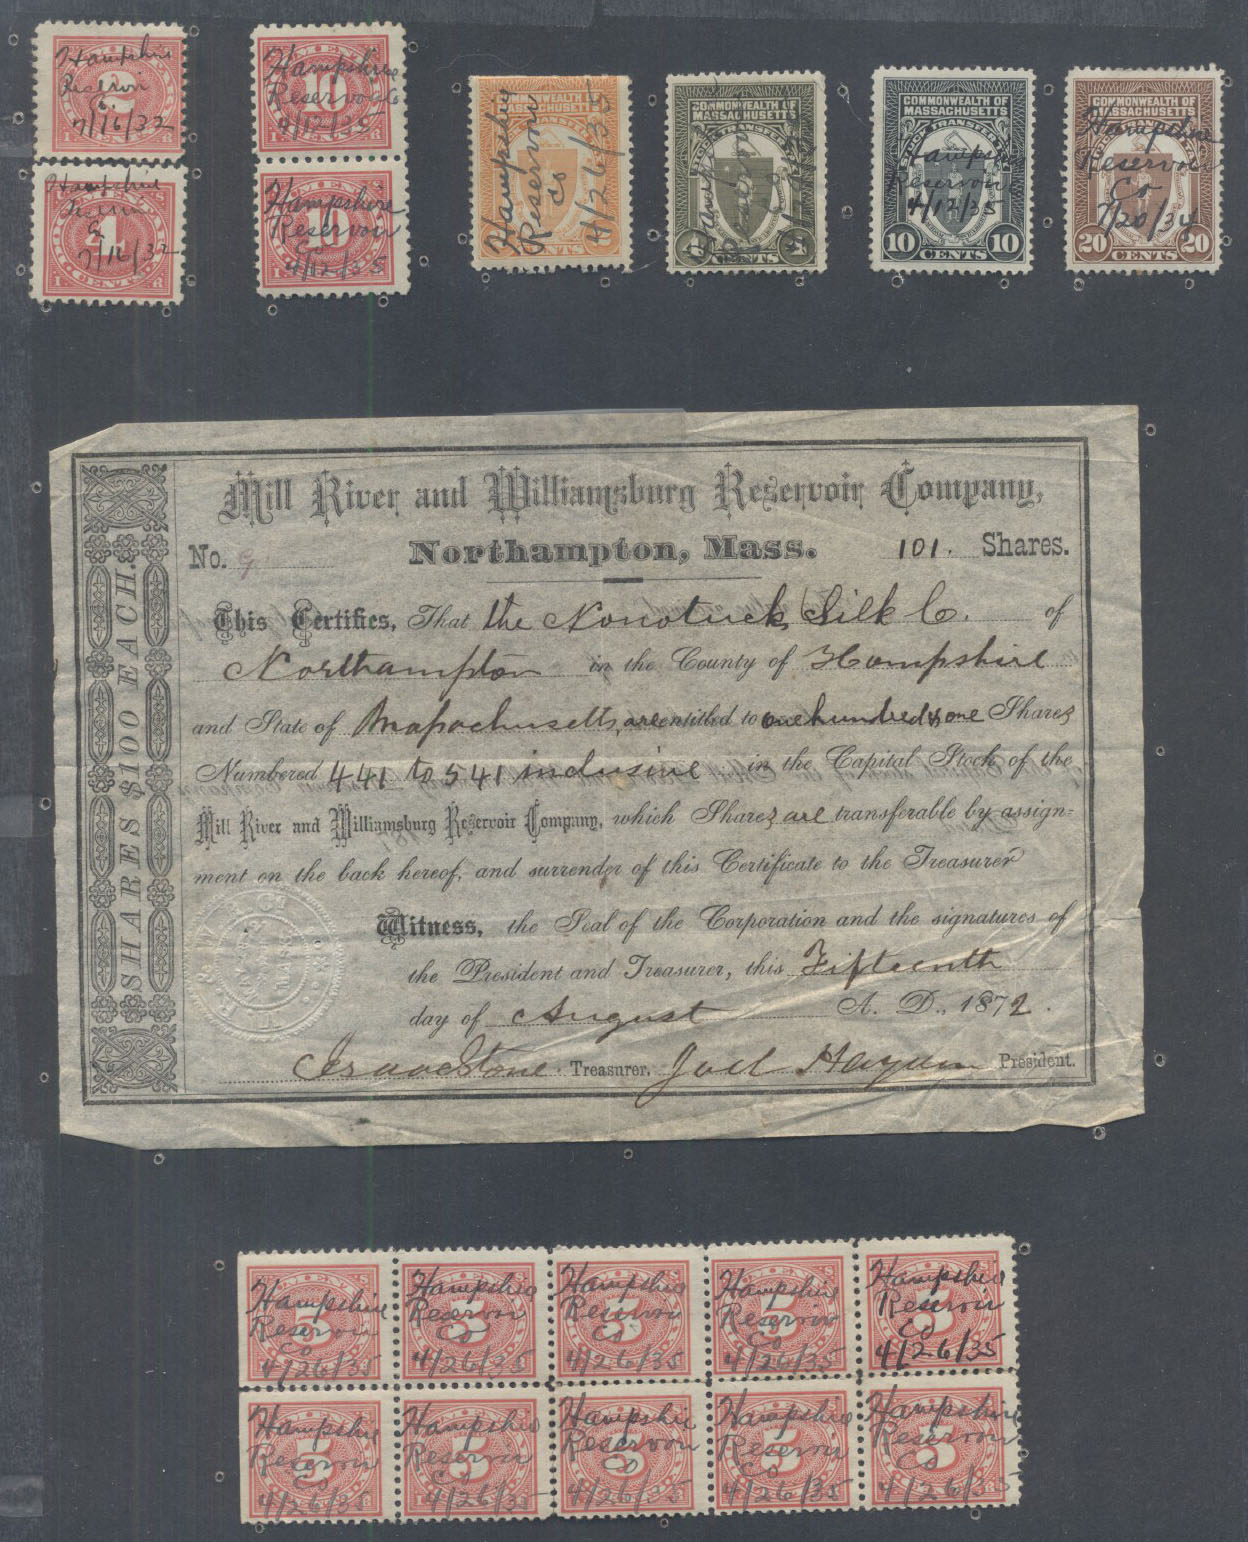 Hampshire
Reservoir
Co
7/16/32
Hampshire
Co
7/16/32
4
CENTS
Hampshire
Reservoir Co
4/12/35
10
Hampshire
Reservoir
Co
4/12/35
Hampshire
Reservoir
Co
4/26/35
CENTS
COMMONWEALTH OF
MASSACHUSETTS
STOCK TRANSFER
CENTS
COMMONWEALTH OF
MASSACHUSETTS
STOCK TRANSFER
Hampshire
Reservoir Co
4/12/35
10 CENTS 10
COMMONWEALTH OF
MASSACHUSETTS
STOCK TRANSFER
Hampshire
Reservoir
Co
7/20/34
20 CENTS 20
SHARES $100 EACH.
Mill River and Williamsburg Reservoir Company,
Northampton, Mass.
No. 9
101. Shares.
This Certifies, That the Nonotuck Silk Co. of
Northampton in the County of Hampshire
and State of Massachusetts, are entitled to one hundred & one Shares
Numbered 441 to 541 inclusive in the Capital Stock of the
Mill River and Williamsburg Reservoir Company, which Shares are transferable by assign-
ment on the back hereof, and surrender of this Certificate to the Treasurer
Witness, the Seal of the Corporation and the signatures of
the President and Treasurer, this Fifteenth
day of August A. D., 1872.
Isaac Stone Treasurer. Joel Hayden President.
Hampshire
Reservoir
Co
4/26/35
5
Hampshire
Reservoir
Co
4/26/35
5
Hampshire
Reservoir
Co
4/26/35
5
Hampshire
Reservoir
Co
4/26/35
5
Hampshire
Reservoir
Co
4/26/35
5
Hampshire
Reservoir
Co
4/26/35
5
Hampshire
Reservoir
Co
4/26/35
5
Hampshire
Reservoir
Co
4/26/35
5
Hampshire
Reservoir
Co
4/26/35
5
Hampshire
Reservoir
Co
4/26/35
5